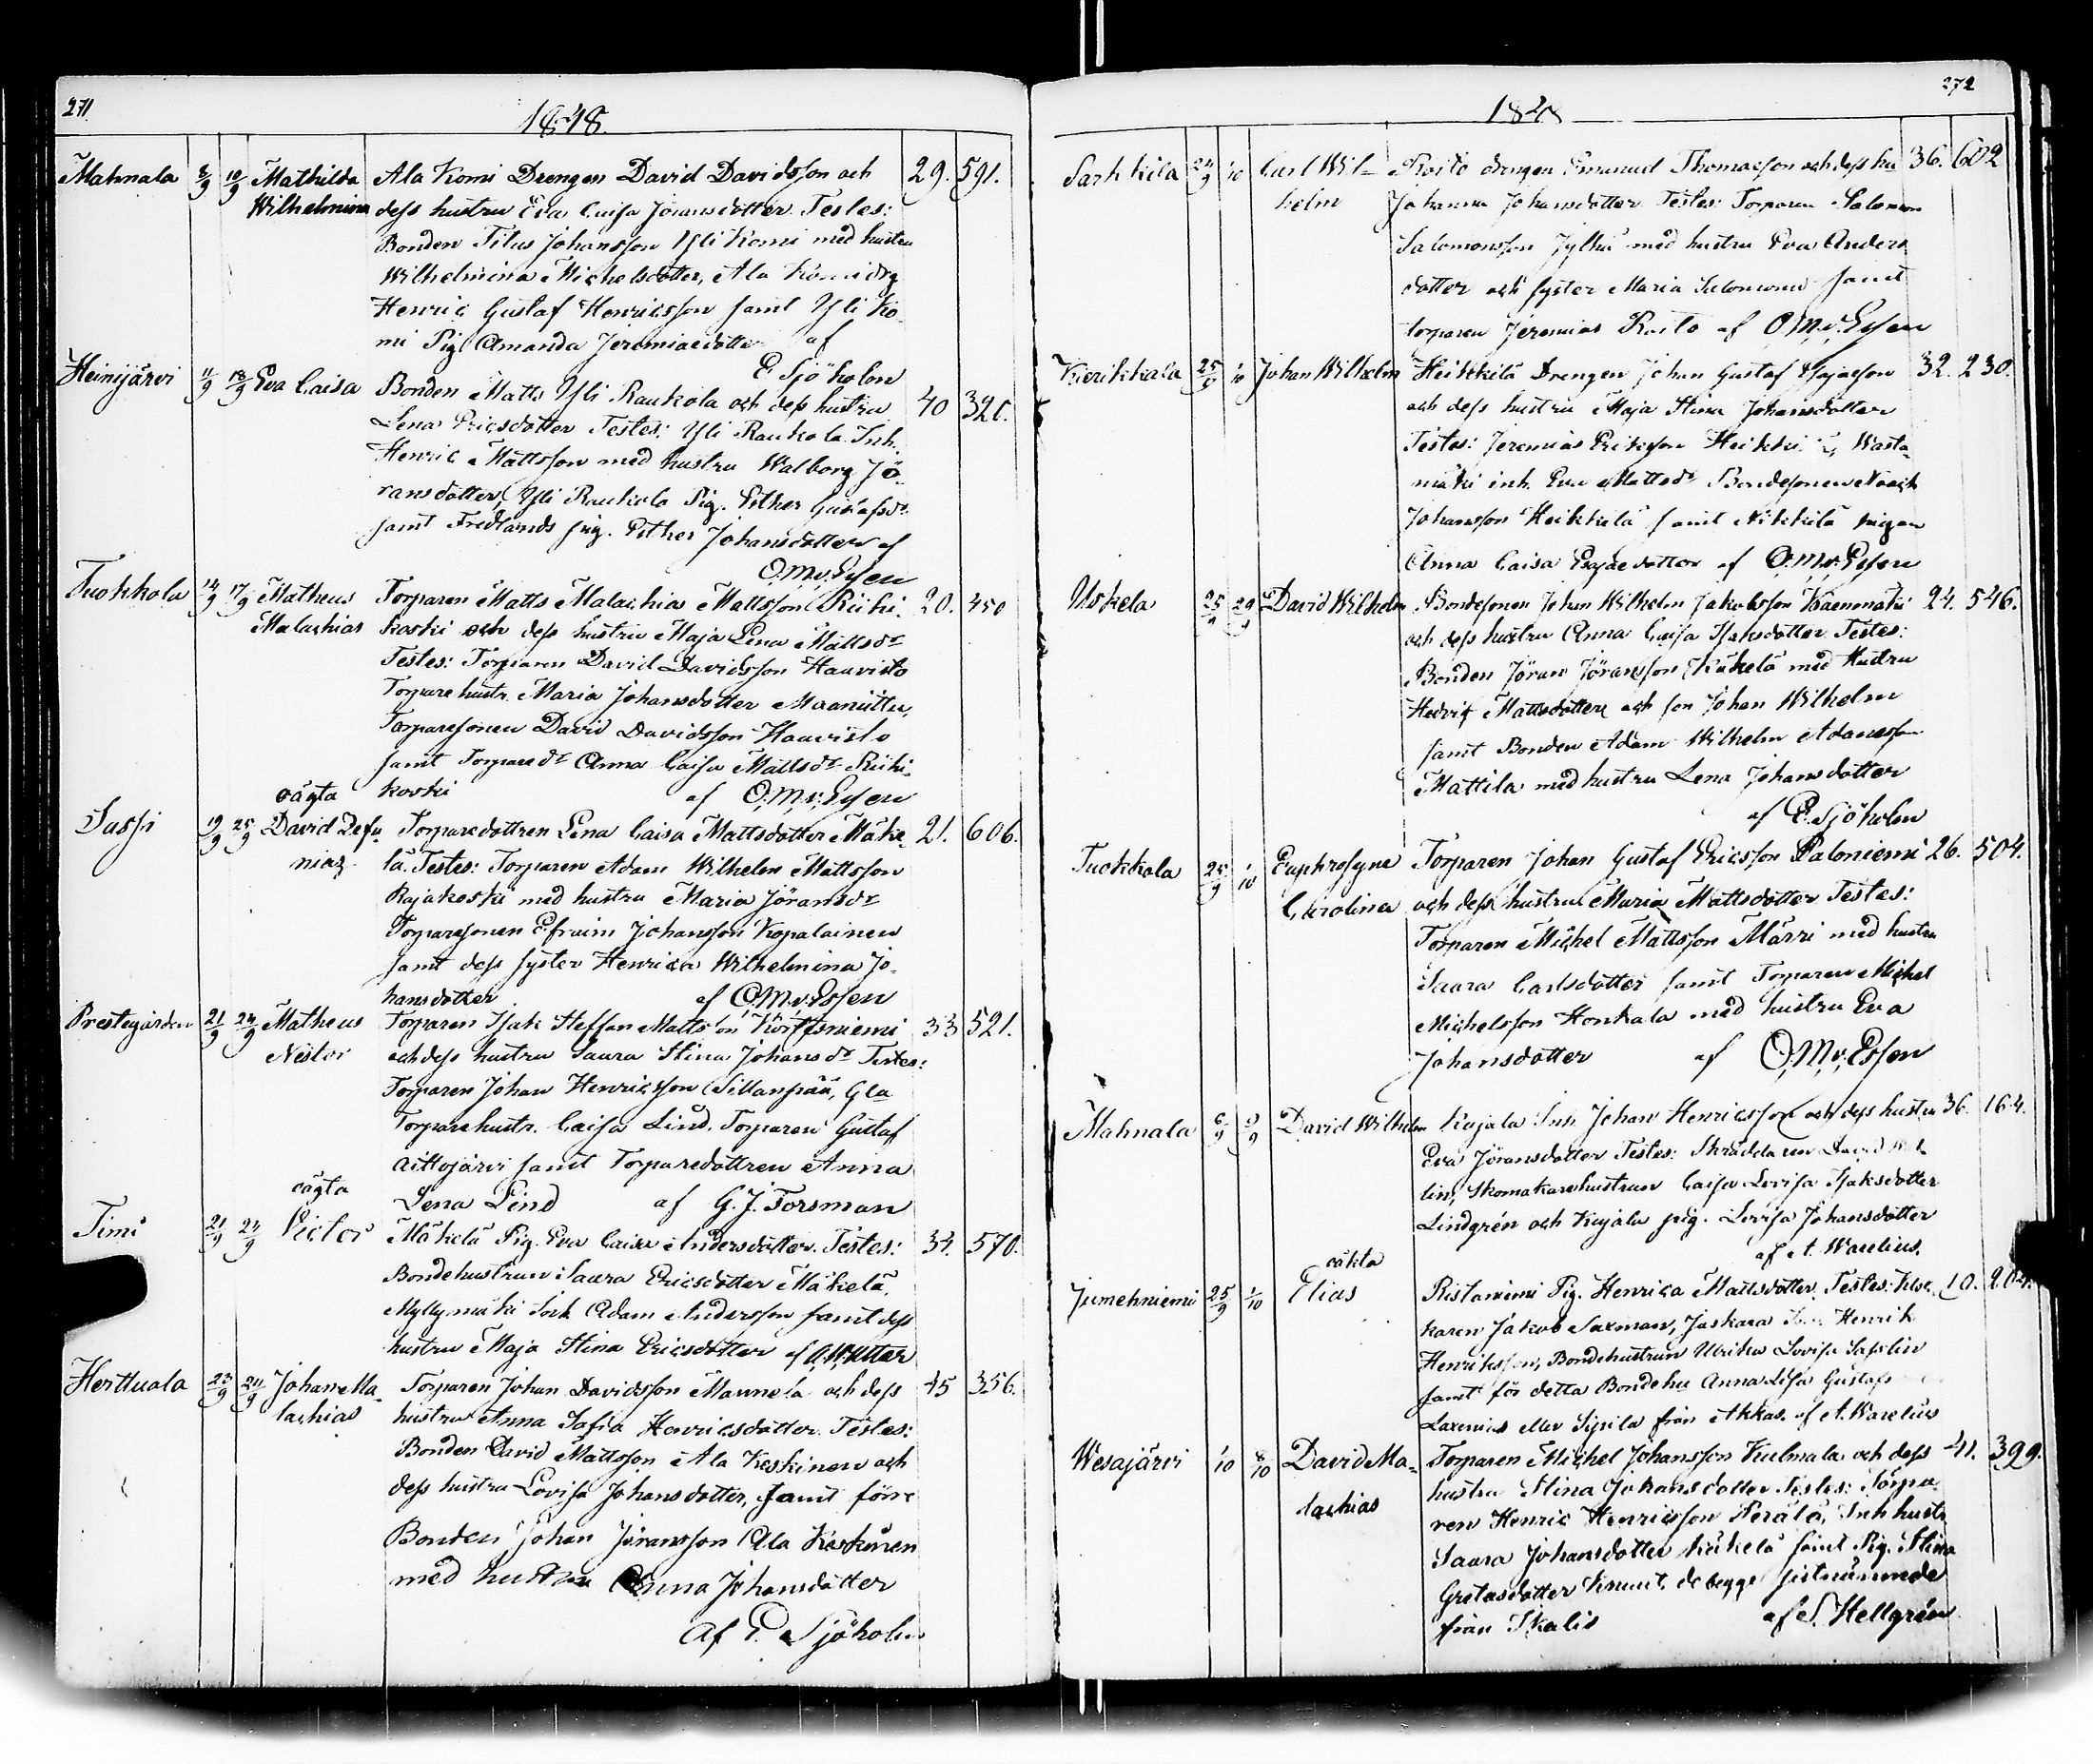 271.
1848.
Mahnala 8/9 10/9 Mathilda Ala Komi Drengen David Davidsson och 29. 591.
Wilhelmina dess hustru Eva Caisa Jöransdotter. Testes:
Bonden Titus Johansson Yli Komi med hustru
Wilhelmina Michelsdotter, Ala Komi drg
Henric Gustaf Henricsson samt Yli Ko-
mi Pig. Amanda Jeremiaedotter af
E Sjöholm
Heinijärvi 11/9 18/9 Eva Caisa Bonden Matts Yli Raukola och dess hustru 40 320.
Lena Ericsdotter Testes: Yli Raukola Inh.
Henric Mattsson med hustru Walborg Jö-
ransdotter, Yli Raukola Pig. Esther Gustafsdr
samt Fredlands pig. Esther Johansdotter af
O.M.v.Essen
Tuokkola 14/9 17/9 Matheus Torparen Matts Malachias Mattsson Riihi- 20. 450
Malachias koski och dess hustru Maja Lena Mattsdr
Testes: Torparen David Davidsson Haavisto
Torparehustr. Maria Johansdotter Maanittu,
Torparesonen David Davidsson Haavisto
samt Torparedr Anna Caisa Mattsdr Riihi-
oägta koski af O.M.v.Essen
Sasfi 19/9 25/9 David Defa- Torparedottren Lena Caisa Mattsdotter Mäke- 21. 606.
niaz lä. Testes: Torparen Adam Wilhelm Mattsson
Rajakoski med hustru Maria Jöransdr
Torparesonen Efraim Johansson Kopalainen
samt dess syster Henrica Wilhelmina Jo-
hansdotter af O.M.v.Essen
Prestegården 21/9 24/9 Matheus Torparen Isak Steffan Matts'on Korttesniemi 33 521.
Nestor och dess hustru Saara Stina Johansdr Testes:
Torparen Johan Henricsson Sillanpää, Gla
Torparehustr. Caisa Lind. Torparen Gustaf
Aittojärvi samt Torparedottren Anna
oägta Lena Lind af G. J. Forsman
Timi 21/9 24/9 Victor Mäkelä Pig. Eva Caisa Andersdotter. Testes: 34. 570.
Bondehustrun Saara Ericsdotter Mäkelä,
Myllymäki Adam Andersson samt dess
hustru Maja Stina Ericsdotter af
Herttuala 23/9 24/9 Johan Ma- Torparen Johan Davidsson Mannela och dess 45 356.
lachias hustru Anna Safia Henricsdotter. Testes:
Bonden David Mattsson Ala Keskinen och
dess hustru Lovisa Johansdotter, samt förre
Bonden Johan Jöransson Ala Keskinen
med hustru Anna Johansdotter
af E. Sjöholm
272
1848
Sarkkila 24/9 1/10 Carl Wil- Roito drengen Emanuel Thomasson och dess hu 36. 602
helm Johanna Johansdotter Testes: Torparen Salomon
Salomonsson Jylhä med hustru Eva Anders
dotter och syster Maria Salomons samt
torparen Jeremias Roito af O.M.v.Essen
Kierikkala 25/9 1/10 Johan Wilhelm Heikkilä Drengen Johan Gustaf Esajaeson 32. 230.
och dess hustru Maja Stina Johansdotter
Testes: Jeremias Eriksson Heikkilä, Wasta-
mäki inh. Eva Mattsdr Bondesonen Noach
Johansson Heikkilä samt Nikkilä pigan
Anna Caisa Esajaedotter af O.M.v.Essen
Uskela 25/9 29/9 David Wilhelm Bondesonen Johan Wilhelm Jakobsson Kaenmäki 24. 546.
och dess hustru Anna Caisa Isaksdotter. Testes:
Bonden Jöran Jöransson Käkelä med Hustru
Hedvig Mattsdotter och son Johan Wilhelm
samt Bonden Adam Wilhelm Adamsson
Mattila med hustru Lena Johansdotter
af E. Sjöholm
Tuokkola 25/9 1/10 Euphrosyne Torparen Johan Gustaf Ericsson Paloniemi 26. 504.
Carolina och dess hustru Maria Mattsdotter Testes:
Torparen Michel Mattsson Märri med hustru
Saara Carlsdotter samt Torparen Michel
Michelsson Honkala med hustru Eva
Johansdotter af O.M.v.Essen
Mahnala 6/9 9/9 David Wilhelm Kajala Inh Johan Henricsson och dess hustru 36. 164.
Eva Jöransdotter Testes: Skräddaren David
lin, Skomakarehustrun Caisa Lovisa Isaksdotter
Lindgrén och Kajala pig. Lovisa Johansdotter
af A. Warelius.
oäkta
Jumehniemi 25/9 1/10 Elias Ristaniemi Pig. Henrica Mattsdotter. Testes: Kloc- 10. 204.
karen Jakob Saxman, Jaskara Henrik
Henriksson, Bondehustrun Ulrika Lovisa Sasslin
samt för detta Bondehu Anna Lisa Gustafs
Laxenius eller Sipila från Akkas. af A. Warelius
Wesajärvi 1/10 8/10 David Ma- Torparen Michel Johansson Kulmala och dess 41. 399.
lachias hustru Stina Johansdotter Testes: Torpa-
ren Henric Henricsson Perälä, Inh hustr
Saara Johansdotter Käkelä samt Pig. Stina
Gretasdotter de begge sistnämnde
från Ikalis af S. Hellgrén